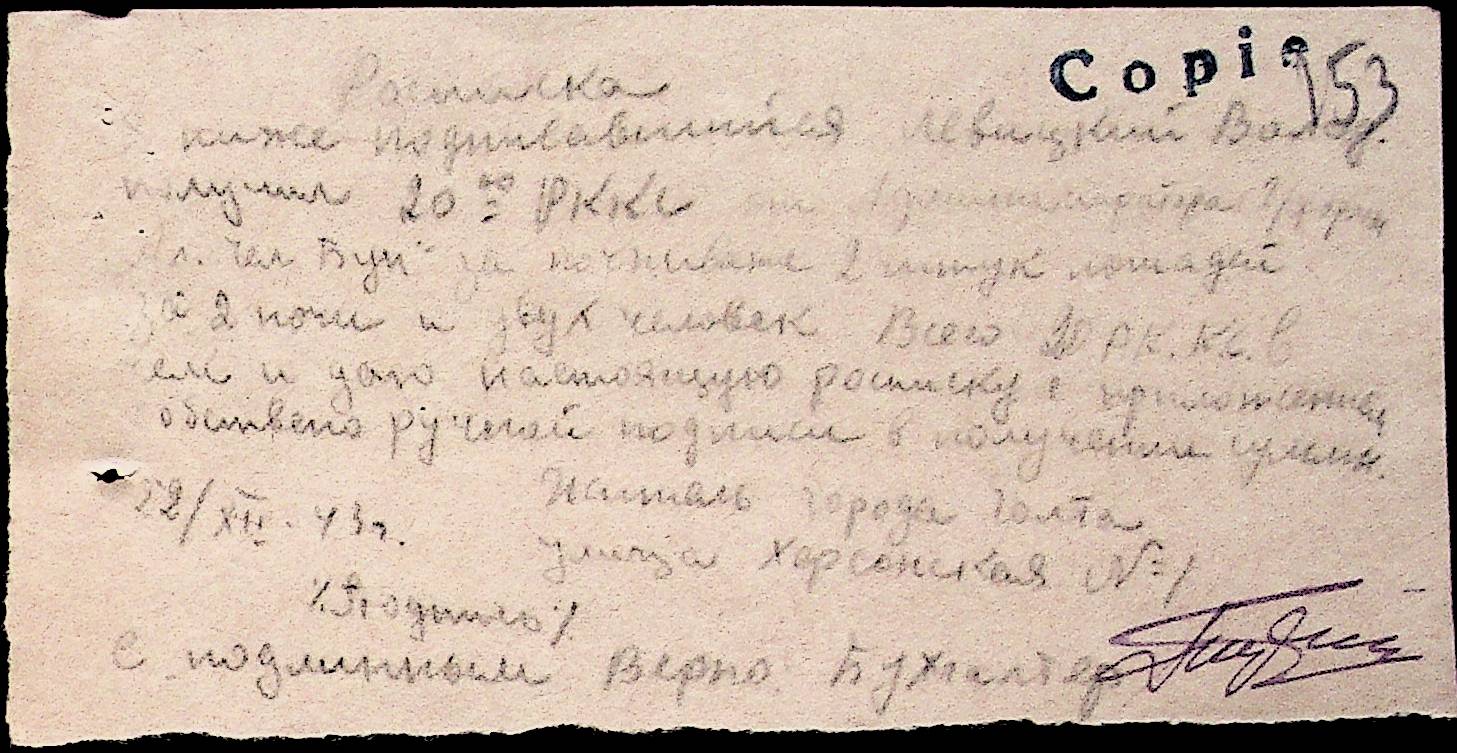 Copie 153
Росписка
ниже подписавшийся Левицкий Волод.
получил 20 РККС от
за ночивание 2 штук лошадей
за 2 ночи и двух человек Всего РК.КС. в
чем и даю настоящую росписку с приложением
обствено ручной подписи в получении
22/XII. 43г. Житель города Голта
улица Херсонская №1
/Подпись/
С подлинным Верно Бухгалтер